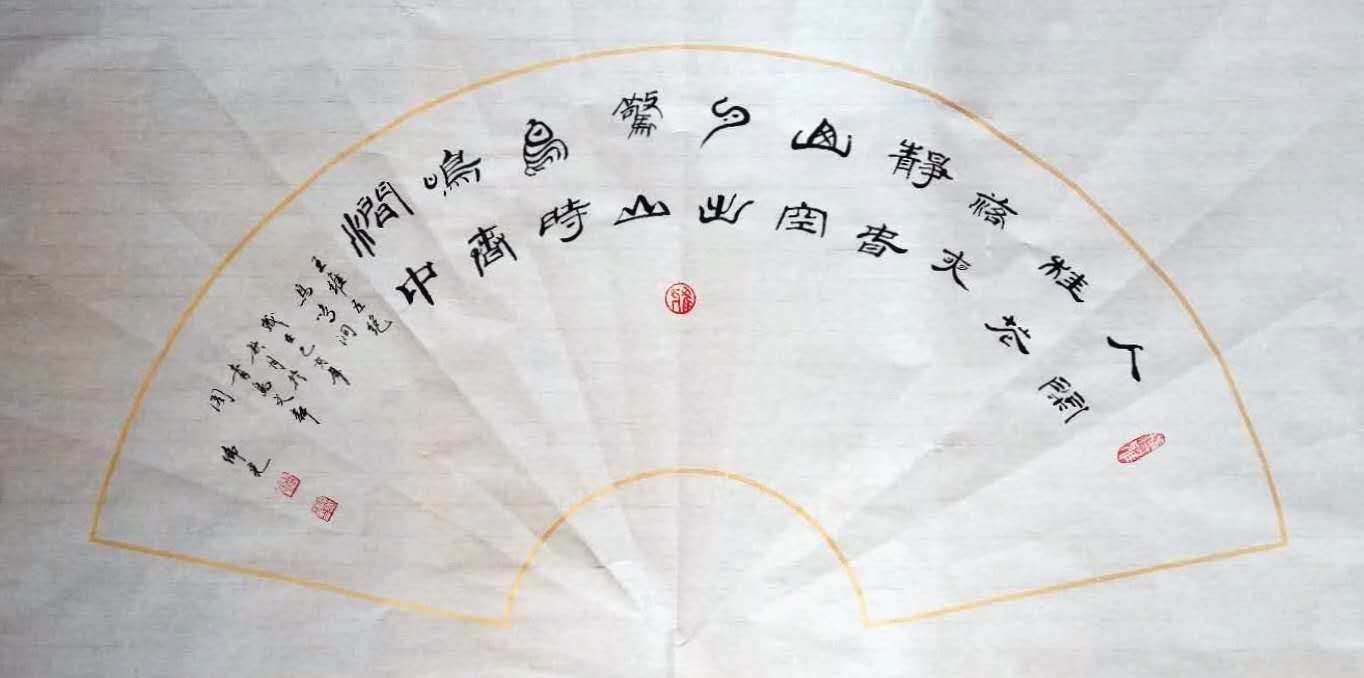 人閒
桂花
落夜
靜春
山空
月出
驚山
鳥時
鳴春
澗中
王維五絕
鳥鳴澗
歲在己亥年
秋月於